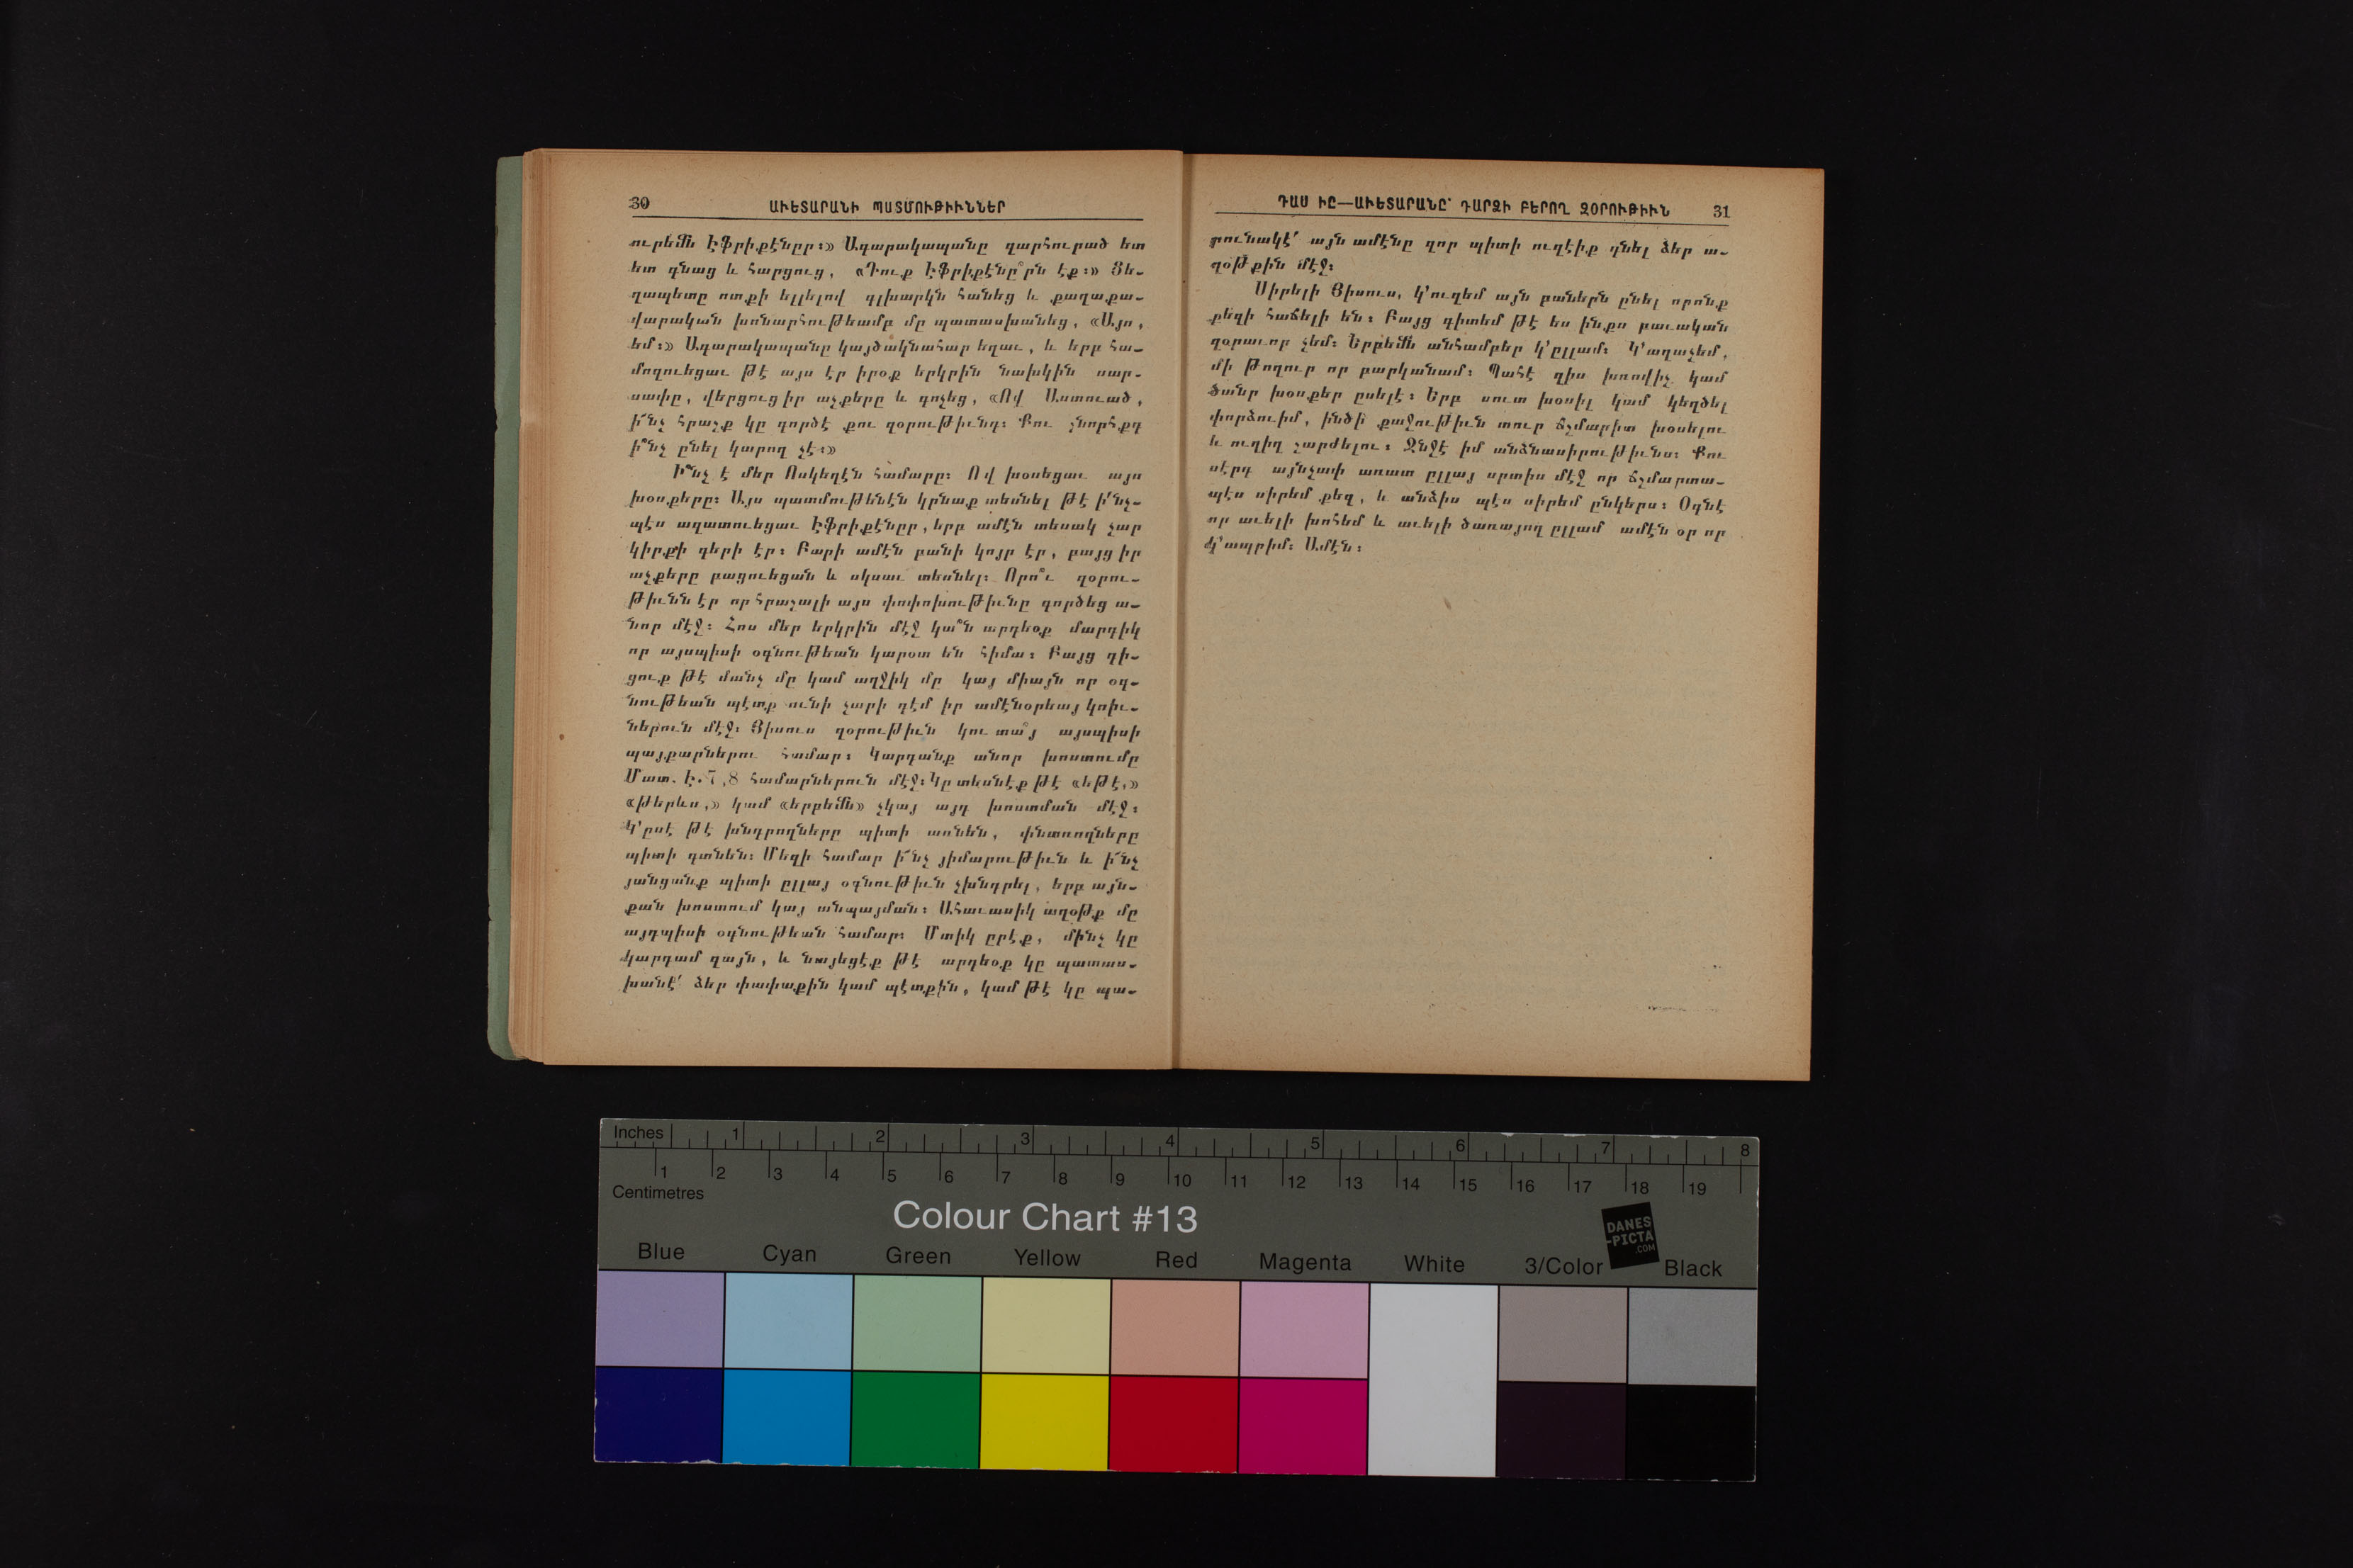 30
ԱՒԵՏԱՐԱՆԻ ՊԱՏՄՈՒԹԻՒՆՆԵՐ
ուրեմն Էֆրիքէնըր։» Ագարակապանը զարհուրած ետ
ետ գնաց և հարցուց, «Դուք Էֆրիքէնը՞րն էք։» Ցե–
ղապետը ոտքի ելլելով գլխարկն հանեց և քաղաքա–
վարական խոնարհութեամբ մը պատասխանեց, «Այո,
եմ։» Ագարակապանը կայծակնահար եղաւ, և երբ հա–
մոզուեցաւ թէ այս էր իրօք երկրին նախկին սար–
սափը, վերցուց իր աչքերը և գոչեց, «Ով Աստուած,
ի՜նչ հրաշք կը գործէ քու զօրութիւնդ։ Քու շնորհքդ
ի՞նչ ընել կարող չէ։»
Ի՞նչ է մեր Ոսկեղէն համարը։ Ով խօսեցաւ այս
խօսքերը։ Այս պատմութենէն կրնաք տեսնել թէ ի՛նչ–
պէս ազատուեցաւ Էֆրիքէնըր, երբ ամէն տեսակ չար
կիրքի գերի էր։ Բարի ամէն բանի կոյր էր, բայց իր
աչքերը բացուեցան և սկսաւ տեսնել։ Որո՞ւ զօրու–
թիւնն էր որ հրաշալի այս փոփոխութիւնը գործեց ա–
նոր մէջ։ Հոս մեր երկրին մէջ կա՞ն արդեօք մարդիկ
որ այսպիսի օգնութեան կարօտ են հիմա։ Բայց դի–
ցուք թէ մանչ մը կամ աղջիկ մը կայ միայն որ օգ–
նութեան պէտք ունի չարի դէմ իր ամէնօրեայ կռիւ–
ներուն մէջ։ Յիսուս զօրութիւն կու տա՞յ այսպիսի
պայքարներու համար։ Կարդանք անոր խոստումը
Մատ. Է. 7, 8 համարներուն մէջ։ Կը տեսնէք թէ «եթէ,»
«թերևս,» կամ «երբեմն» չկայ այդ խոստման մէջ։
Կ՚ըսէ թէ խնդրողները պիտի առնեն, փնտռողները
պիտի գտնեն։ Մեզի համար ի՜նչ յիմարութիւն և ի՜նչ
յանցանք պիտի ըլլայ օգնութիւն չխնդրել, երբ այն–
քան խոստում կայ անպայման։ Ահաւասիկ աղօթք մը
այդպիսի օգնութեան համար։ Մտիկ ըրէք, մինչ կը
կարդամ զայն, և նայեցէք թէ արդեօք կը պատաս–
խանէ՛ ձեր փափաքին կամ պէտքին, կամ թէ կը պա–
ԴԱՍ ԻԸ—ԱՒԵՏԱՐԱՆԸ՝ ԴԱՐՁԻ ԲԵՐՈՂ ԶՕՐՈՒԹԻՒՆ
31
րունակէ՛ այն ամէնը զոր պիտի ուզէիք դնել ձեր ա–
ղօթքին մէջ։
Սիրելի Յիսուս, կ՚ուզեմ այն բաներն ընել որոնք
քեզի հաճելի են։ Բայց գիտեմ թէ ես ինքս բաւական
զօրաւոր չեմ։ Երբեմն անհամբեր կ՚ըլլամ։ Կ՚աղաչեմ,
մի թողուր որ բարկանամ։ Պահէ զիս խռովիչ կամ
ծանր խօսքեր ըսելէ։ Երբ սուտ խօսիլ կամ կեղծել
փորձուիմ, ինծի քաջութիւն տուր ճշմարիտ խօսելու
և ուղիղ շարժելու։ Ջնջէ իմ անձնասիրութիւնս։ Քու
սէրդ այնչափ առատ ըլլայ սրտիս մէջ որ ճշմարտա–
պէս սիրեմ քեզ, և անձիս պէս սիրեմ ընկերս։ Օգնէ
որ աւելի խոհեմ և աւելի ծառայող ըլլամ ամէն օր որ
կ՚ապրիմ։ Ամէն։
Inches 1 2 3 4 5 6 7 8
1 2 3 4 5 6 7 8 9 10 11 12 13 14 15 16 17 18 19
Centimetres
Colour Chart #13
DANES
-PICTA
.COM
Blue Cyan Green Yellow Red Magenta White 3/Color Black